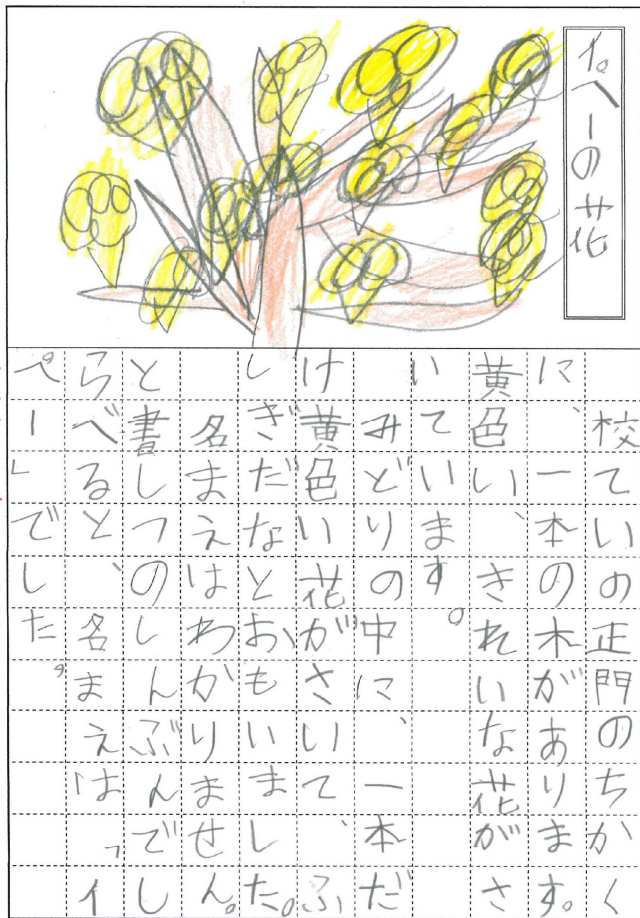 イペーの花
校ていの正門のちかく
に、一本の木があります。
黄色い、きれいな花がさ
いています。
みどりの中に、一本だ
け黄色い花がさいて、ふ
しぎだなとおもいました。
名まえはわかりません。
と書しつのしんぶんでし
らべると、名まえは「イ
ペー」でした。